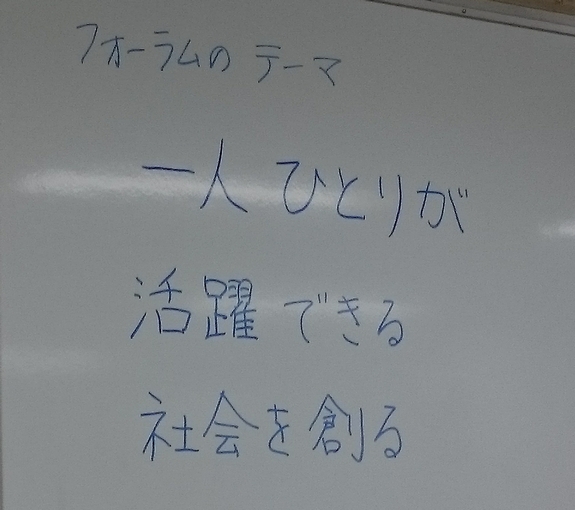 フォーラムの テーマ
一人 ひとりが
活躍 できる
社会を 創る